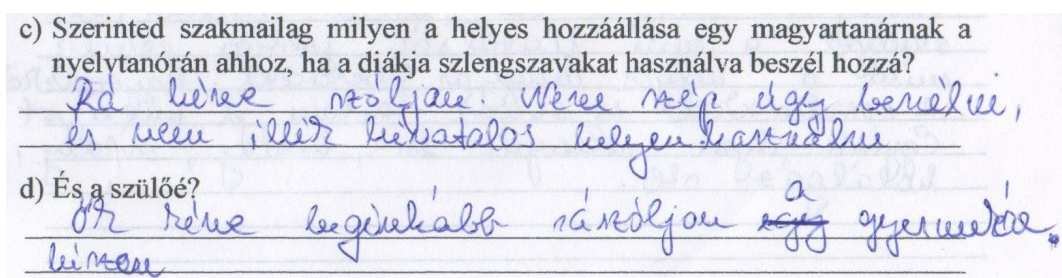 c) Szerinted szakmailag milyen a helyes hozzáállása egy magyartanárnak a
nyelvtanórán ahhoz, ha a diákja szlengszavakat használva beszél hozzá?
Rá kéne szóljan. Nem szép úgy beszélni,
és nem illik hivatalos helyen használni
d) És a szülőé?
Ők kéne leginkább rászóljon a egy gyermekére,
hiszen